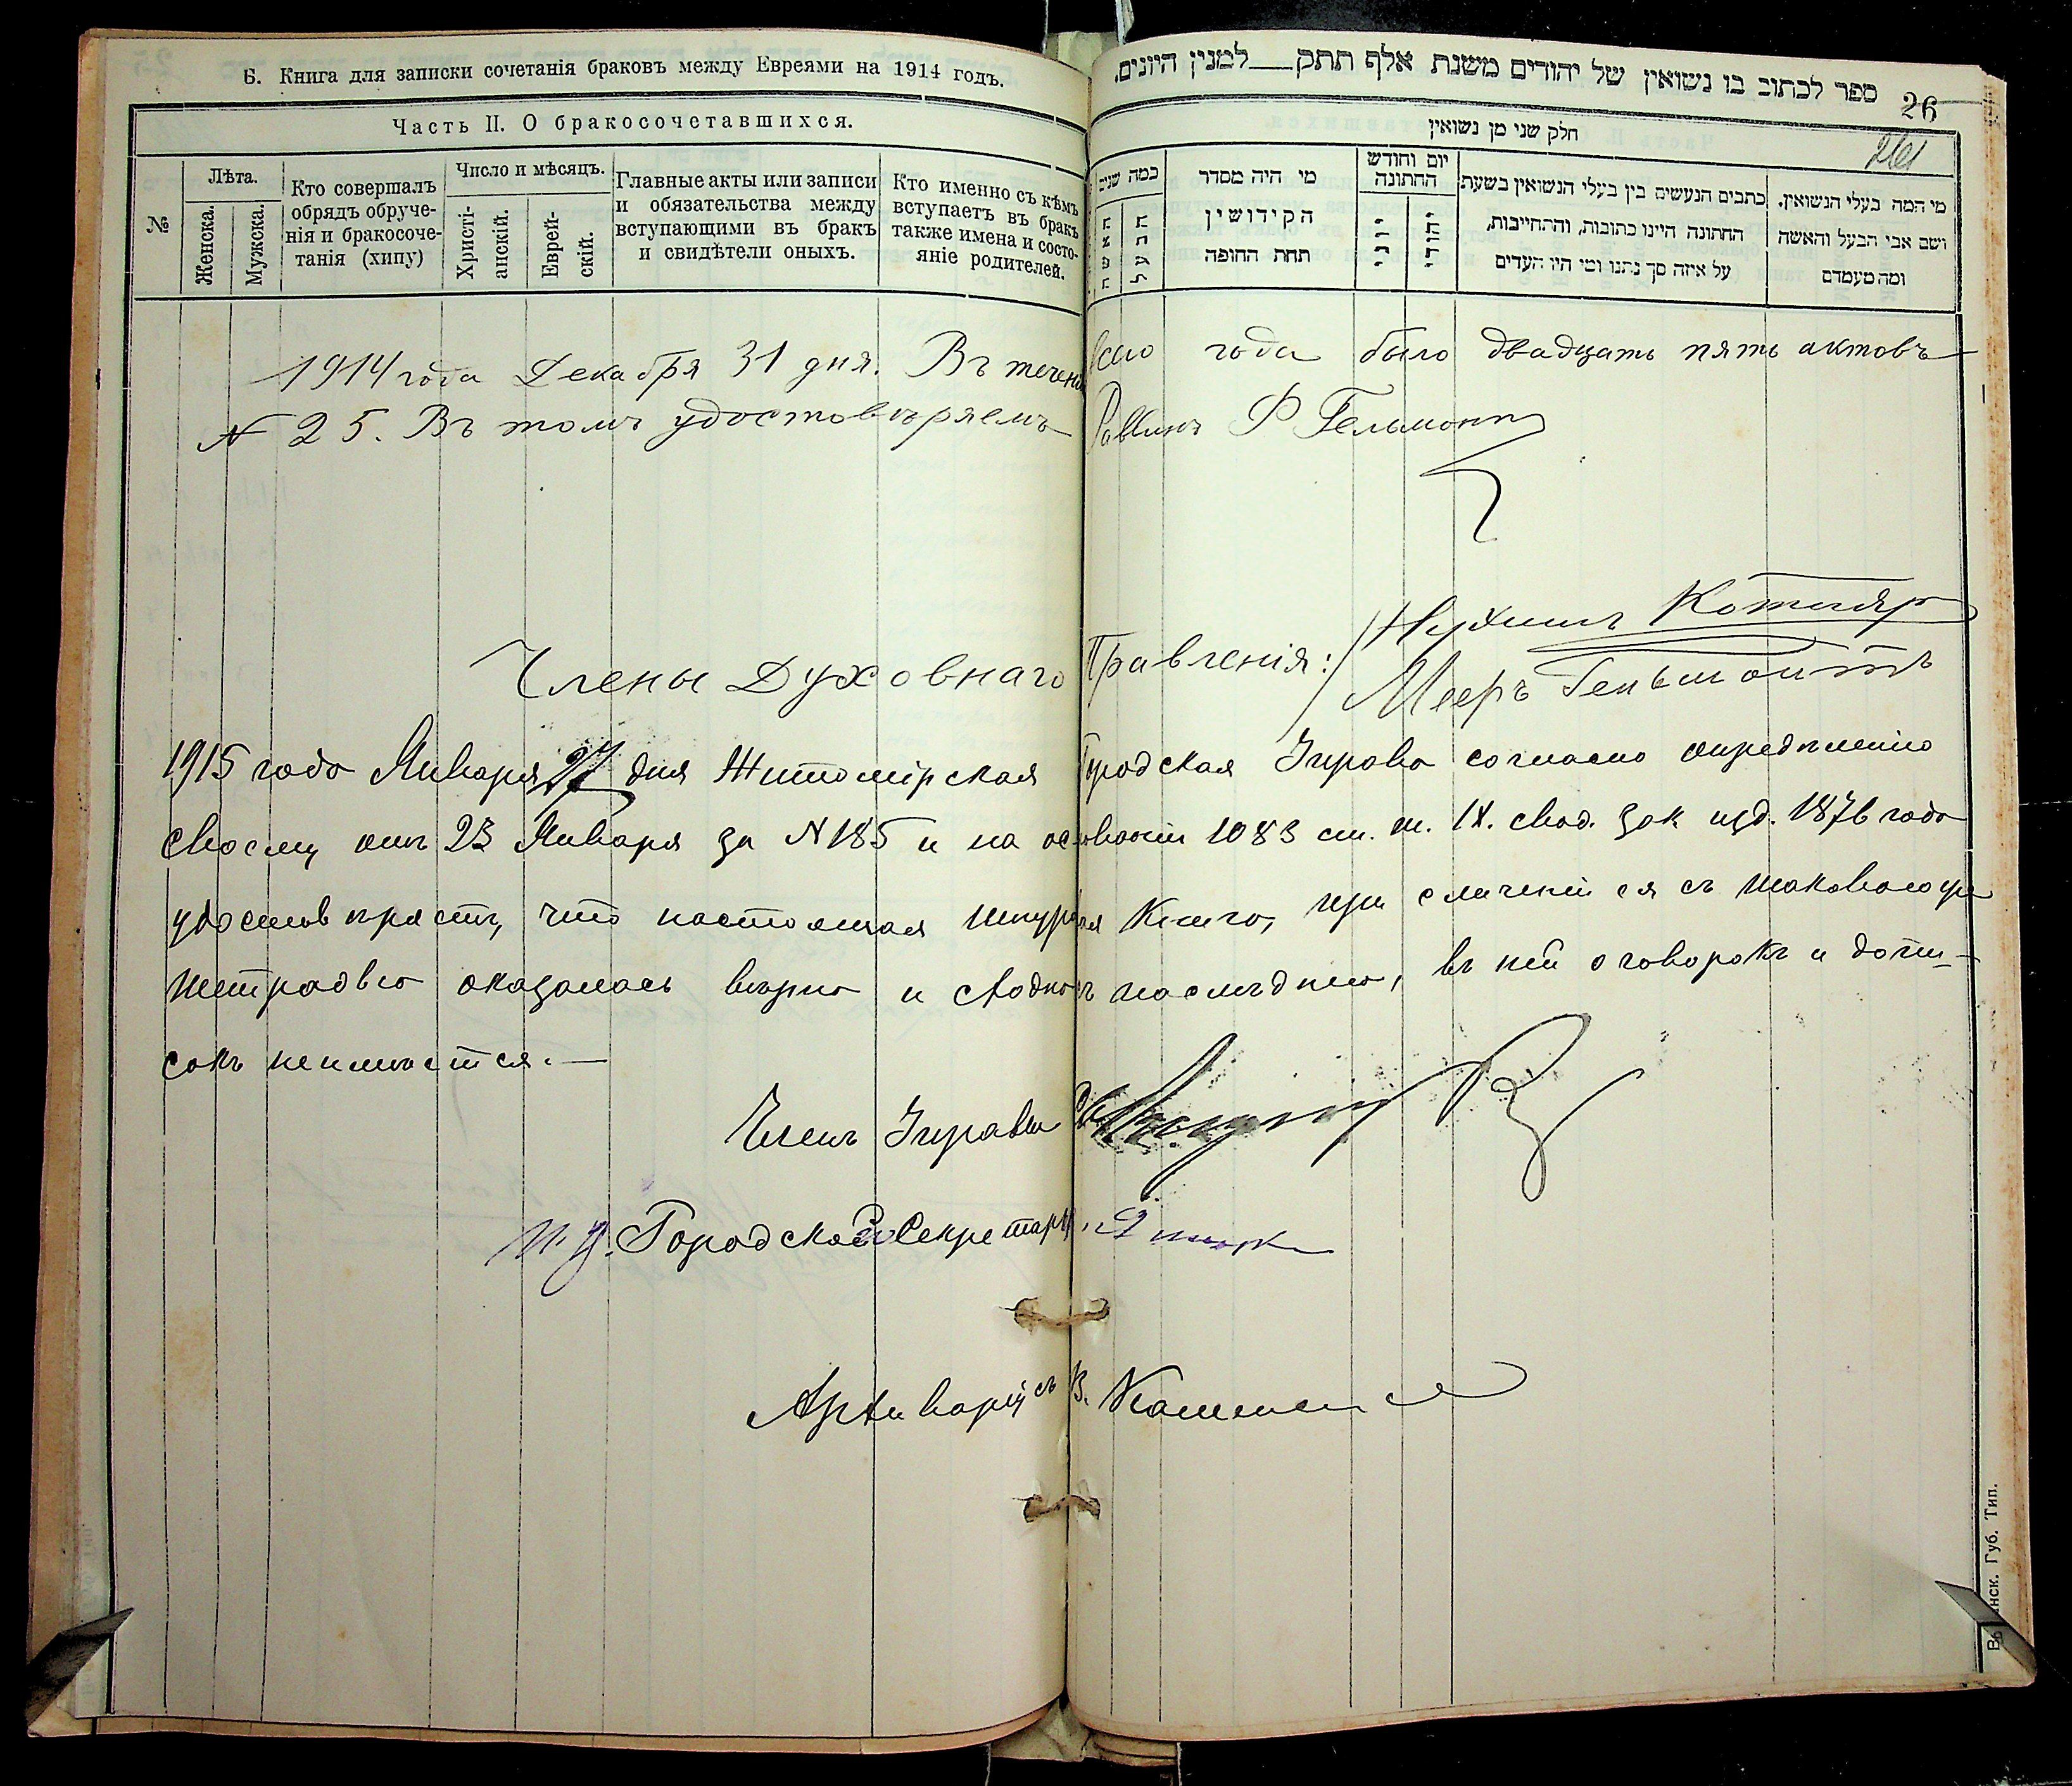 Б. Книга для записки сочетанія браковъ между Евреями на 1914 годъ.
Часть II. О бракосочетавшихся.
№
Лѣта.
Женска.
Мужска.
Кто совершалъ
обрядъ обруче-
нія и бракосоче-
танія (хипу)
Число и мѣсяцъ.
Христі-
анскій.
Еврей-
скій.
Главные акты или записи
и обязательства между
вступающими въ бракъ
и свидѣтели оныхъ.
Кто именно съ кѣмъ
вступаетъ въ бракъ
также имена и состо-
яніе родителей.
ספר לכתוב בו נשואין של יהודים משנת אלף תתק__למנין היונים.
26
261
חלק שני מן נשואין
כמה שנים
האשה
הבעל
מי היה מסדר
הקידושין
תחת החופה
יום וחודש
החתונה
כתבים הנעשים בין בעלי הנשואין בשעת
החתונה היינו כתובות, והתחייבות,
על איזה סך נתנו ומי היו העדים
מי המה בעלי הנשואין.
ושם אבי הבעל והאשה
ומה מעמדם
1914 года Декабря 31 дня. Въ теченіи всего года было двадцать пять актовъ
№ 25. Въ томъ удостовѣряемъ Раввинъ Ф Гельмонтъ
Члены Духовнаго Правленія: Нухимъ Котляр
Мееръ Гельмонтъ
1915 года Января 27 дня Житомірская Городская Управа согласно опредѣленію
своему отъ 23 Января за № 185 и на основаніи 1083 ст. т. IX. свод. зак изд. 1876 года
удостовѣряетъ, что настоящая шнуровая Книга, при сличеніи ея съ таковою же
тетрадью оказалась вѣрно и сходно съ послѣднею, въ ней оговорокъ и допи-
сокъ неимѣется.—
Членъ Управы
И. д. Городского Секретаря
Архиваріусъ В.
Губ. Тип.